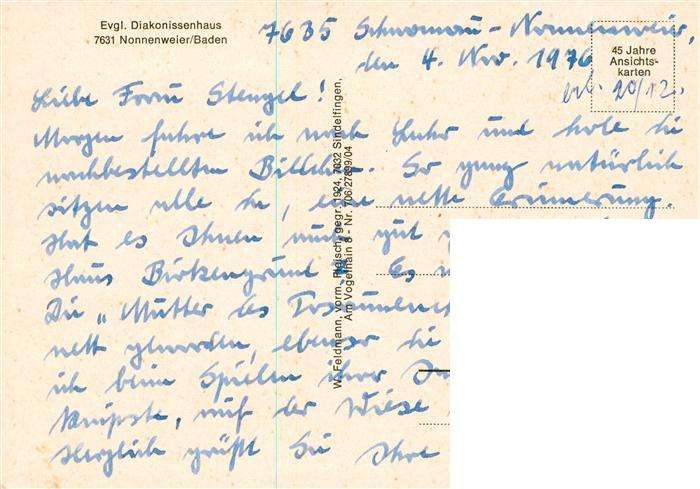 Evgl. Diakonissenhaus
7631 Nonnenweier/Baden
45 Jahre
Ansichts-
karten
7635 Schwanau-Nonnenweier,
den 4. Nov. 1976
20/12.
Liebe Frau Stengel!
Morgen fahre ich nach Lahr und hole die
nachbestellten Bildchen. So ganz natürlich
sitzen alle da, eine nette Erinnerung.
Hat es Ihnen auch gut
Haus Birkengrund Es
Die "Mutter des
nett geworden, ebenso die
ich beim Spielen ihrer
knipste, auf der Wiese
Herzlich grüßt Sie Ihre
W. Feldmann, vorm. Fleisch, gegr. 1924, 7032 Sindelfingen,
Am Vogelhain 8 - Nr. 706/27899/04